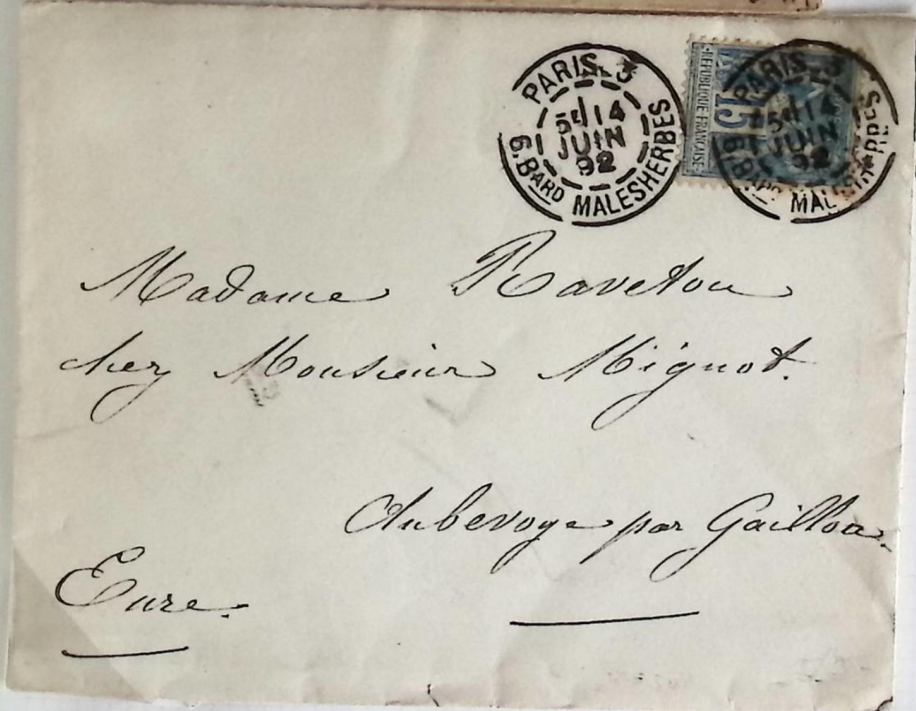 PARIS_3
5E 14
JUIN
92
6.BARD MALESHERBES
REPUBLIQUE FRANCAISE
15
PARIS_3
5E 14
JUIN
92
6.BARD MALESHERBES
Madame Raveton
chez Monsieur Mignot.
Aubevoye par Gaillon
Eure.